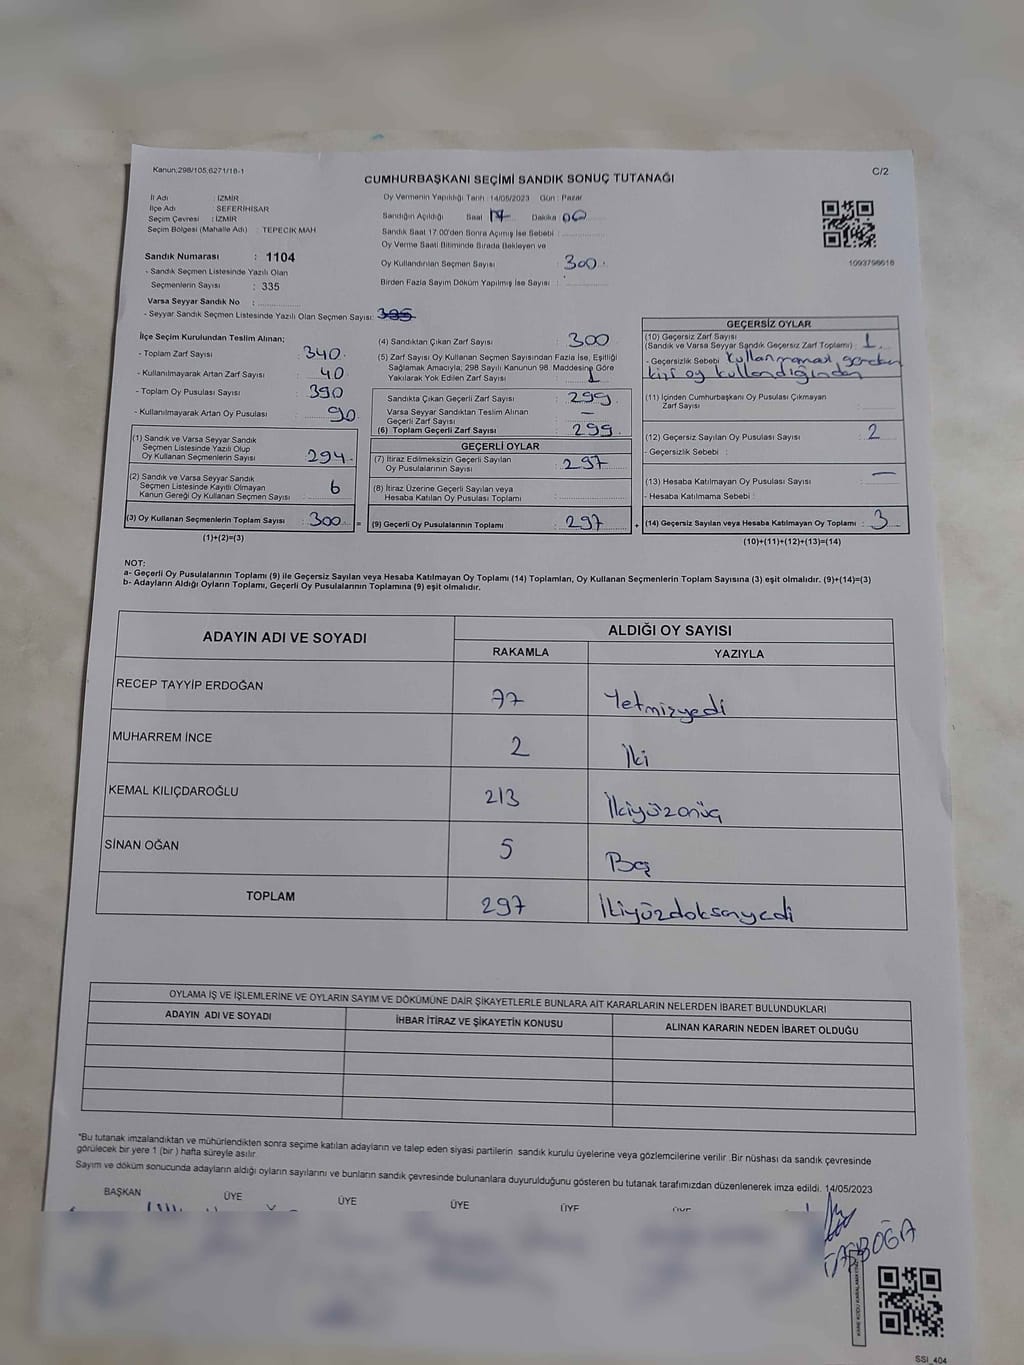 Kanun;298/105,6271/16-1
C/2
CUMHURBAŞKANI SEÇİMİ SANDIK SONUÇ TUTANAĞI
İl Adı : İZMİR
İlçe Adı : SEFERİHİSAR
Seçim Çevresi : İZMİR
Seçim Bölgesi (Mahalle Adı) : TEPECİK MAH
Oy Vermenin Yapıldığı Tarih : 14/05/2023 Gün : Pazar
Sandığın Açıldığı Saat 17 Dakika : 00
Sandık Saat 17.00'den Sonra Açımış İse Sebebi :
Oy Verme Saati Bitiminde Sırada Bekleyen ve
Oy Kullandırılan Seçmen Sayısı : 300
Birden Fazla Sayım Döküm Yapılmış İse Sayısı :
1093798618
Sandık Numarası : 1104
- Sandık Seçmen Listesinde Yazılı Olan
Seçmenlerin Sayısı : 335
Varsa Seyyar Sandık No :
- Seyyar Sandık Seçmen Listesinde Yazılı Olan Seçmen Sayısı: 335
İlçe Seçim Kurulundan Teslim Alınan;
- Toplam Zarf Sayısı : 340
- Kullanılmayarak Artan Zarf Sayısı : 40
- Toplam Oy Pusulası Sayısı : 390
- Kullanılmayarak Artan Oy Pusulası : 90
(1) Sandık ve Varsa Seyyar Sandık
Seçmen Listesinde Yazılı Olup
Oy Kullanan Seçmenlerin Sayısı : 294
(2) Sandık ve Varsa Seyyar Sandık
Seçmen Listesinde Kayıtlı Olmayan
Kanun Gereği Oy Kullanan Seçmen Sayısı : 6
(3) Oy Kullanan Seçmenlerin Toplam Sayısı : 300 =
(1)+(2)=(3)
(4) Sandıktan Çıkan Zarf Sayısı : 300
(5) Zarf Sayısı Oy Kullanan Seçmen Sayısından Fazla İse, Eşitliği
Sağlamak Amacıyla; 298 Sayılı Kanunun 98. Maddesine Göre
Yakılarak Yok Edilen Zarf Sayısı : 1
Sandıkta Çıkan Geçerli Zarf Sayısı : 299
Varsa Seyyar Sandıktan Teslim Alınan
Geçerli Zarf Sayısı : —
(6) Toplam Geçerli Zarf Sayısı : 299
GEÇERLİ OYLAR
(7) İtiraz Edilmeksizin Geçerli Sayılan
Oy Pusulalarının Sayısı : 297
(8) İtiraz Üzerine Geçerli Sayılan veya
Hesaba Katılan Oy Pusulası Toplamı :
(9) Geçerli Oy Pusulalarının Toplamı : 297 +
GEÇERSİZ OYLAR
(10) Geçersiz Zarf Sayısı
(Sandık ve Varsa Seyyar Sandık Geçersiz Zarf Toplamı) : 1
- Geçersizlik Sebebi Kullanmaması gereken
kişi oy kullandığından
(11) İçinden Cumhurbaşkanı Oy Pusulası Çıkmayan
Zarf Sayısı :
(12) Geçersiz Sayılan Oy Pusulası Sayısı : 2
- Geçersizlik Sebebi :
(13) Hesaba Katılmayan Oy Pusulası Sayısı : —
- Hesaba Katılmama Sebebi :
(14) Geçersiz Sayılan veya Hesaba Katılmayan Oy Toplamı : 3
(10)+(11)+(12)+(13)=(14)
NOT:
a- Geçerli Oy Pusulalarının Toplamı (9) ile Geçersiz Sayılan veya Hesaba Katılmayan Oy Toplamı (14) Toplamları, Oy Kullanan Seçmenlerin Toplam Sayısına (3) eşit olmalıdır. (9)+(14)=(3)
b- Adayların Aldığı Oyların Toplamı, Geçerli Oy Pusulalarının Toplamına (9) eşit olmalıdır.
ADAYIN ADI VE SOYADI
ALDIĞI OY SAYISI
RAKAMLA YAZIYLA
RECEP TAYYİP ERDOĞAN 77 Yetmizyedi
MUHARREM İNCE 2 İki
KEMAL KILIÇDAROĞLU 213 İkiyüzonüç
SİNAN OĞAN 5 Beş
TOPLAM 297 İkiyüzdoksanyedi
OYLAMA İŞ VE İŞLEMLERİNE VE OYLARIN SAYIM VE DÖKÜMÜNE DAİR ŞİKAYETLERLE BUNLARA AİT KARARLARIN NELERDEN İBARET BULUNDUKLARI
ADAYIN ADI VE SOYADI İHBAR İTİRAZ VE ŞİKAYETİN KONUSU ALINAN KARARIN NEDEN İBARET OLDUĞU
*Bu tutanak imzalandıktan ve mühürlendikten sonra seçime katılan adayların ve talep eden siyasi partilerin sandık kurulu üyelerine veya gözlemcilerine verilir .Bir nüshası da sandık çevresinde
görülecek bir yere 1 (bir ) hafta süreyle asılır.
Sayım ve döküm sonucunda adayların aldığı oyların sayılarını ve bunların sandık çevresinde bulunanlara duyurulduğunu gösteren bu tutanak tarafımızdan düzenlenerek imza edildi. 14/05/2023
BAŞKAN ÜYE ÜYE ÜYE ÜYE ÜYE
TAŞBOĞA
SSI_404